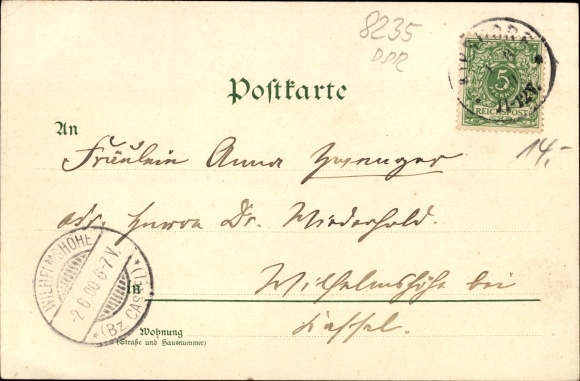 8235
DDR
5
REICHSPOST
11-12V.
Postkarte
14,-
An
Fräulein Anna Zwenger
adr. Herrn Dr. Wiederhold.
WILHELMSHÖHE
-2.6.00.6-7V.
*(Bz. CASSEL)*
In
Wilhelmshöhe bei
Cassel.
Wohnung
(Straße und Hausnummer)